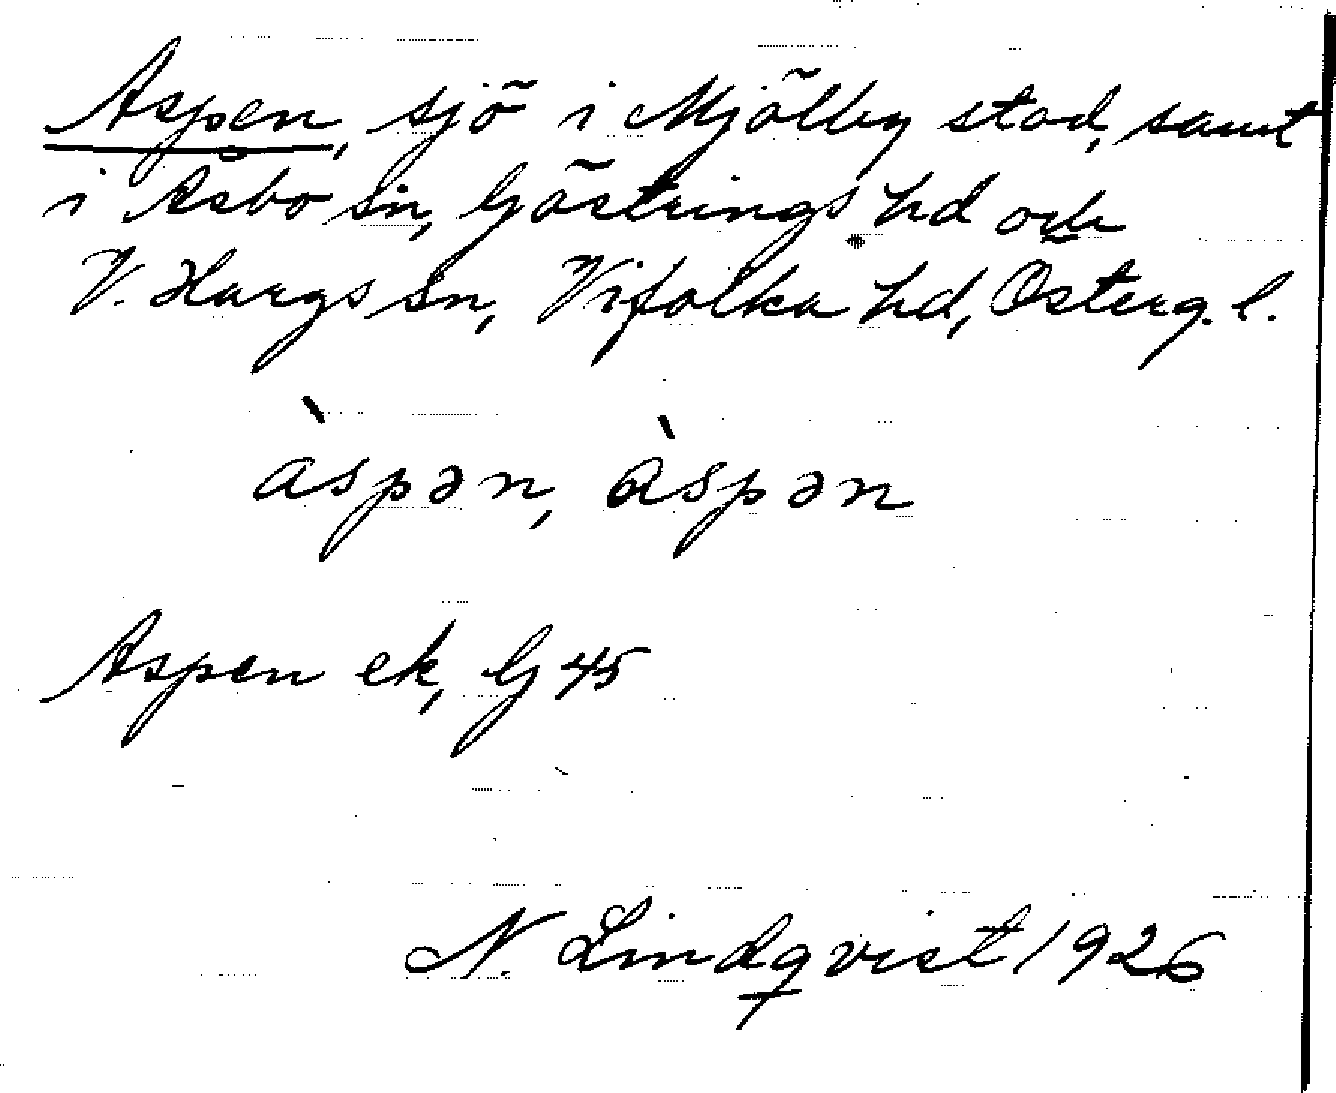 Aspen, sjö i Mjölby stad, samt
i Åsbo sn, Göstrings hd och
V. Hargs sn, Vifolka hd, Österg. l.
àspən, àspən
Aspen ek, Gj 45
N. Lindqvist 1926